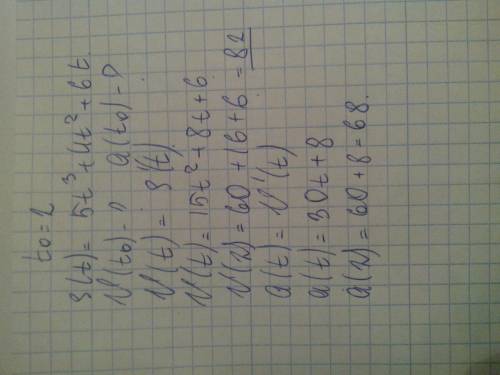 t0=2
S(t)= 5t³+4t²+6t.
V(t0)-? a(t0)-?
V(t)= S'(t)
V(t)=15t²+8t+6.
V(2)=60+16+6=82
a(t)= V'(t)
a(t)=30t+8
a(2)=60+8=68.